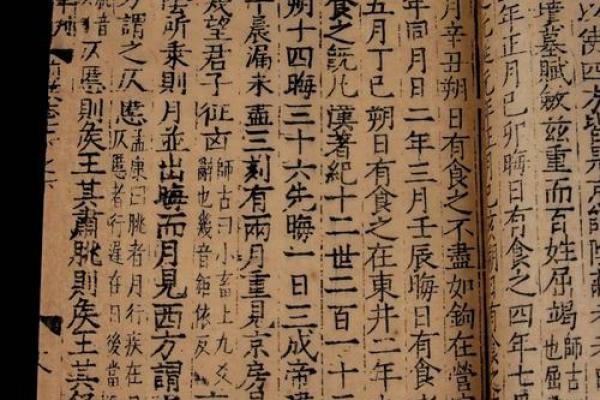 墳墓賦斂茲重而百姓屈竭師古
也屈
年正月己卯晦日有食之四年七
月辛丑朔日有食之不盡如鉤在營
年同月日二年三月壬辰晦日有食
五月丁巳朔日有食之在東井二年
食之旣凡漢著紀十二世二百一十
朔十四晦三十六先晦一日三成帝
晨漏未盡三刻有兩月重見京房
幾望君子征凶師古曰小畜上九爻
辭也幾音鉅依反
所乘則月並出晦而月見西方謂
方謂之仄慝孟康曰朓者月行疾在
仄慝者行遲在日後當
仄慝則侯王其肅朓則侯王其舒